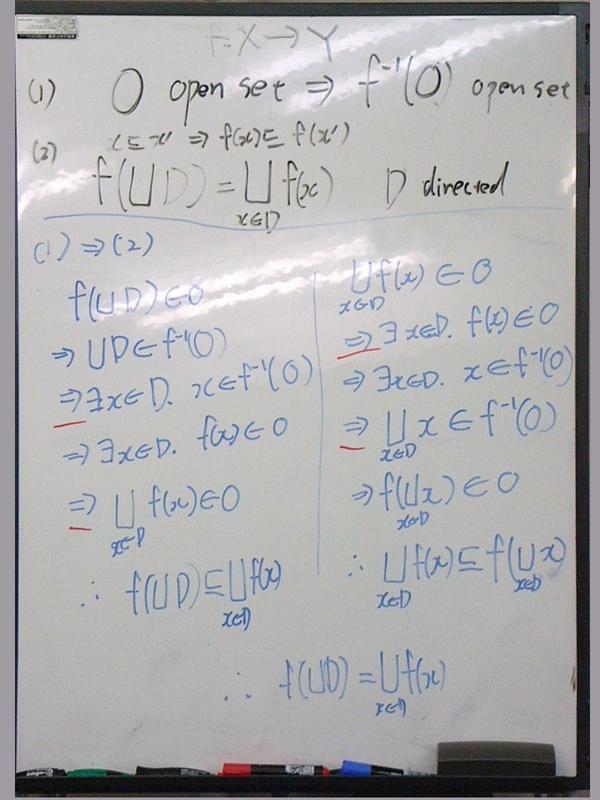 f: X → Y
(1) O open set ⇒ f⁻¹(O) open set
(2) x ⊑ x' ⇒ f(x) ⊑ f(x')
f(⊔D) = ⊔ f(x) D directed
x∈D
(1) ⇒ (2)
f(⊔D) ∈ O
⇒ ⊔D ∈ f⁻¹(O)
⇒ ∃x∈D. x ∈ f⁻¹(O)
⇒ ∃x∈D. f(x) ∈ O
⇒ ⊔ f(x) ∈ O
x∈D
∴ f(⊔D) ⊑ ⊔ f(x)
x∈D
⊔ f(x) ∈ O
x∈D
⇒ ∃x∈D. f(x) ∈ O
⇒ ∃x∈D. x ∈ f⁻¹(O)
⇒ ⊔ x ∈ f⁻¹(O)
x∈D
⇒ f(⊔x) ∈ O
x∈D
∴ ⊔ f(x) ⊑ f(⊔ x)
x∈D x∈D
∴ f(⊔D) = ⊔ f(x)
x∈D